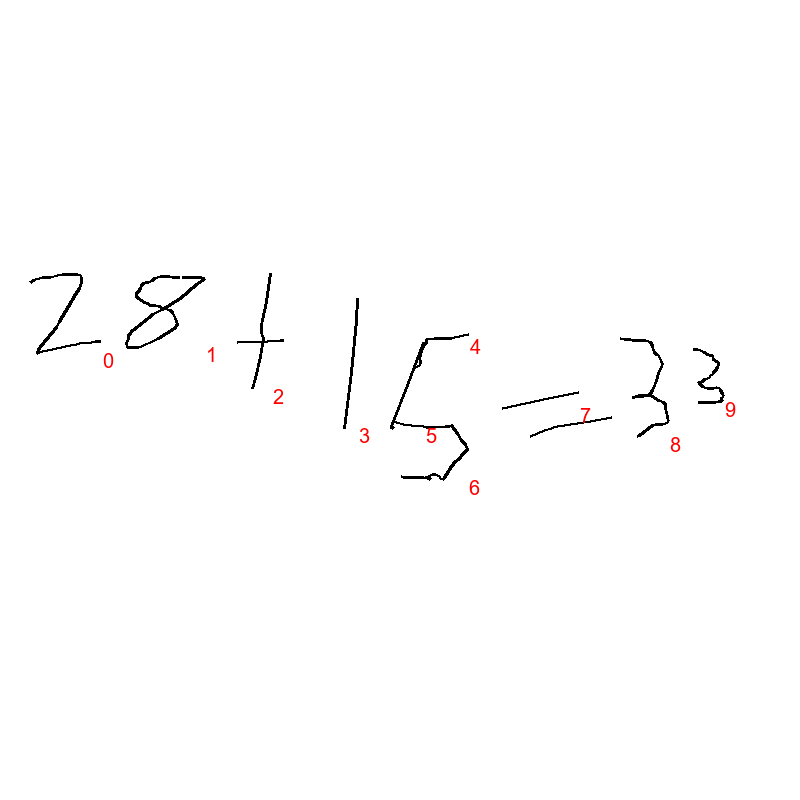 28+15=33
0 1 2 3 4 5 6 7 8 9